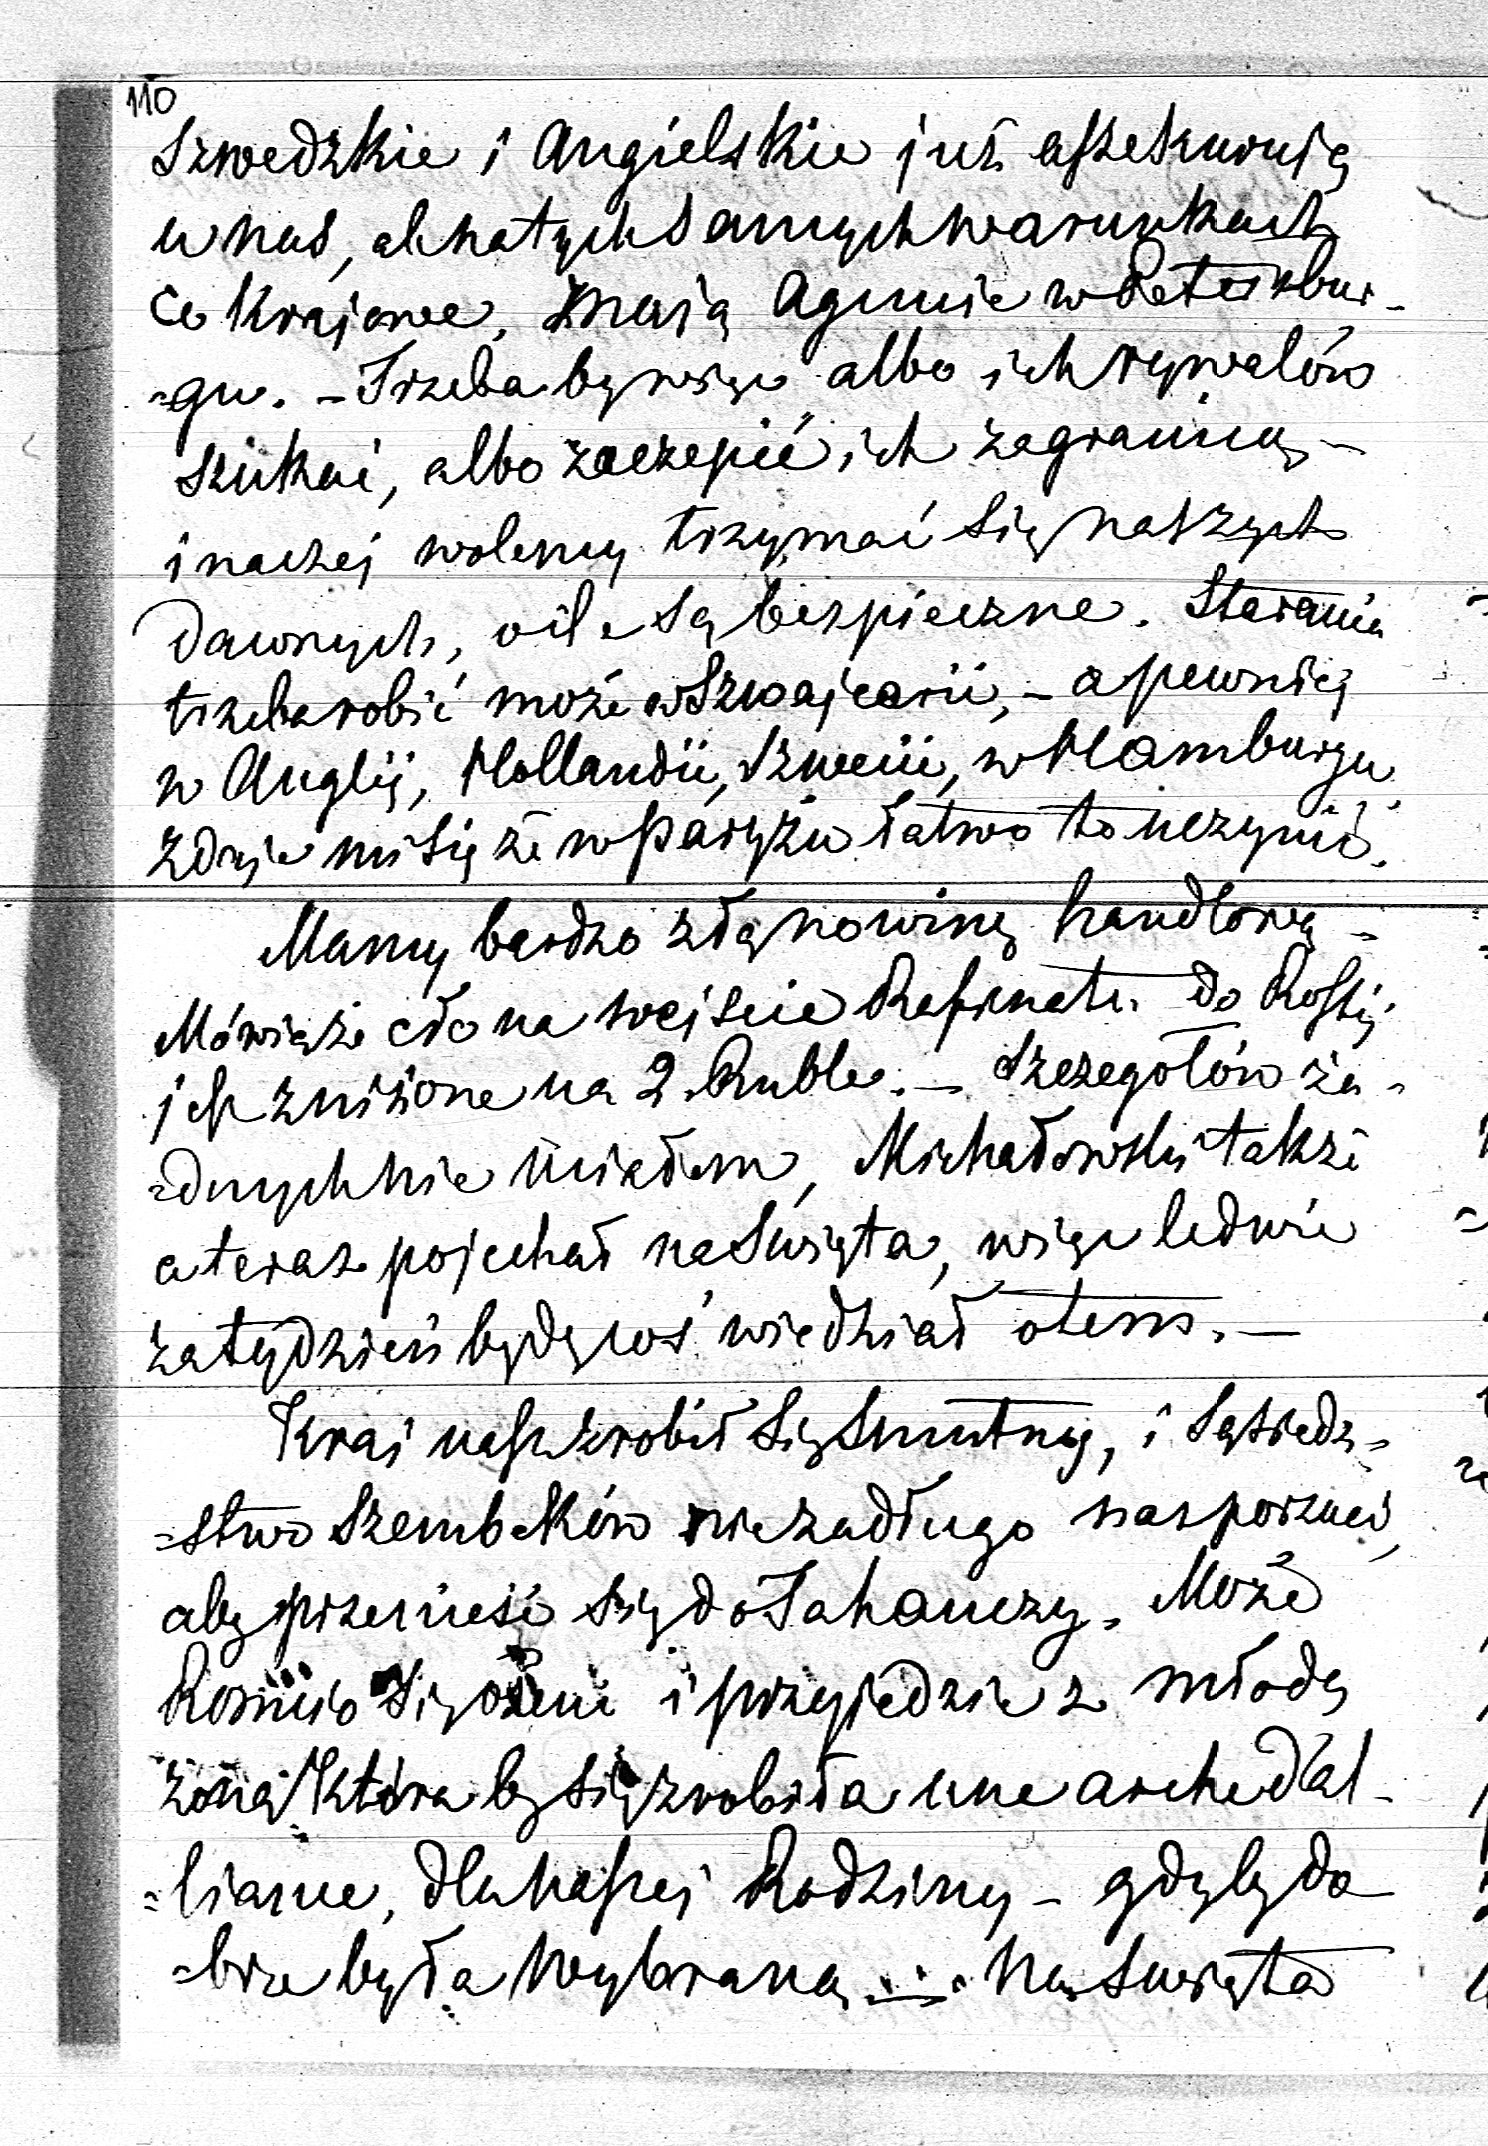 110
Szwedzkie i Angielskie już assekurują
u nas, ale na tych samych warunkach
co Krajowe, mają Agencie w Petersbur-
-gu. - Trzeba by więc albo ich rywalów
szukać, albo zaczepić ich zagranicą -
inaczej wolemy trzymać się naszych
dawnych, o ile są bezpieczne. Starania
trzeba robić może w Szwajcarii, - a pewniej
w Anglij, Hollandii, Szwecii, w Hamburgu
zdaje mi się że w Paryżu łatwo to uczynić.
Mamy bardzo złą nowinę handlową -
Mówią że cło na wejście Rafinatu do Rossij
jest zniżone na 2 Ruble. - Szczegółów ża-
-dnych nie miałem, Michałowski także
a teraz pojechał na Święta, więc ledwie
za tydzień będę coś wiedział o tem. -
Kraj nasz zrobił się smutny, i Sąsiedz-
-stwo Szembeków nie zadługo nas porzuci,
aby przenieść się do Tahanczy. Może
Romcio się ożeni i przyjedzie z młodą
żoną, która by się zrobiła une arche d'al-
-liance, dla naszej Rodziny - gdyby do
-brze była wybraną .... Na Święta